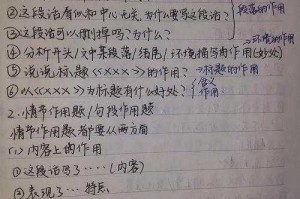 ②这段话看似和中心无关,为什么要写这段话?
段落的作用
③这段话可以删掉吗?为什么?
→环境的作用
④分析开头/文中某段落/结尾/环境描写的作用(好处)
⑤说说标题《×××》的作用? →标题的作用
⑥以《×××》为标题有什么好处? 含义 作用
2.情节作用题/句段作用题
情节作用题都要从两方面
(1)内容上的作用
①这段话写了……(内容)
②表现了…特点